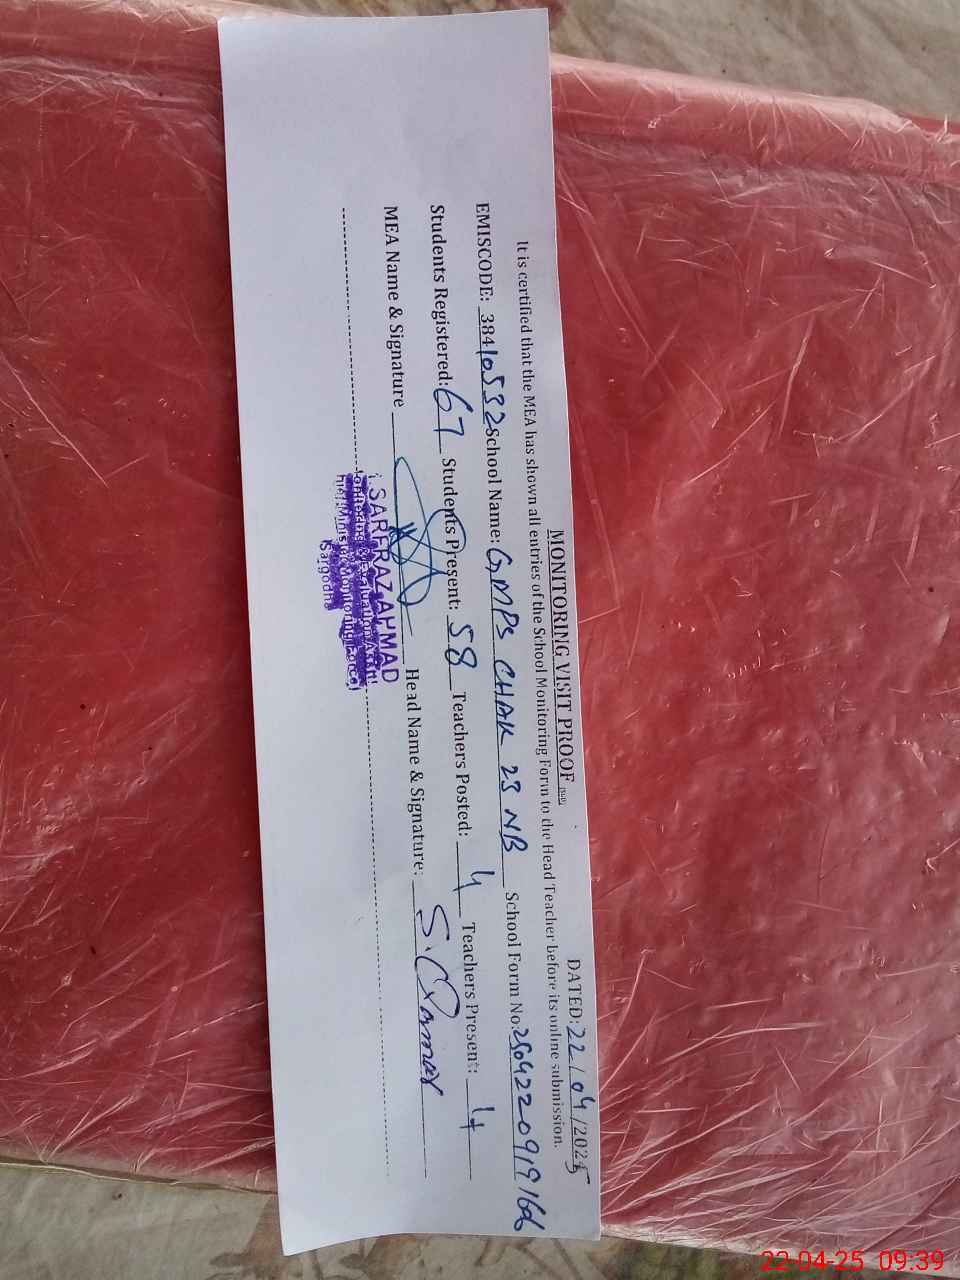 MONITORING VISIT PROOF
DATED: 22/04/2025
It is certified that the MEA has shown all entries of the School Monitoring Form to the Head Teacher before its online submission.
EMISCODE: 38410532 School Name: GMPS CHAK 23 NB School Form No: 2504220919166
Students Registered: 67 Students Present: 58 Teachers Posted: 4 Teachers Present: 4
MEA Name & Signature Head Name & Signature: S.
SARFRAZ AHMAD
Monitoring Force
Sargodha
22-04-25 09:39